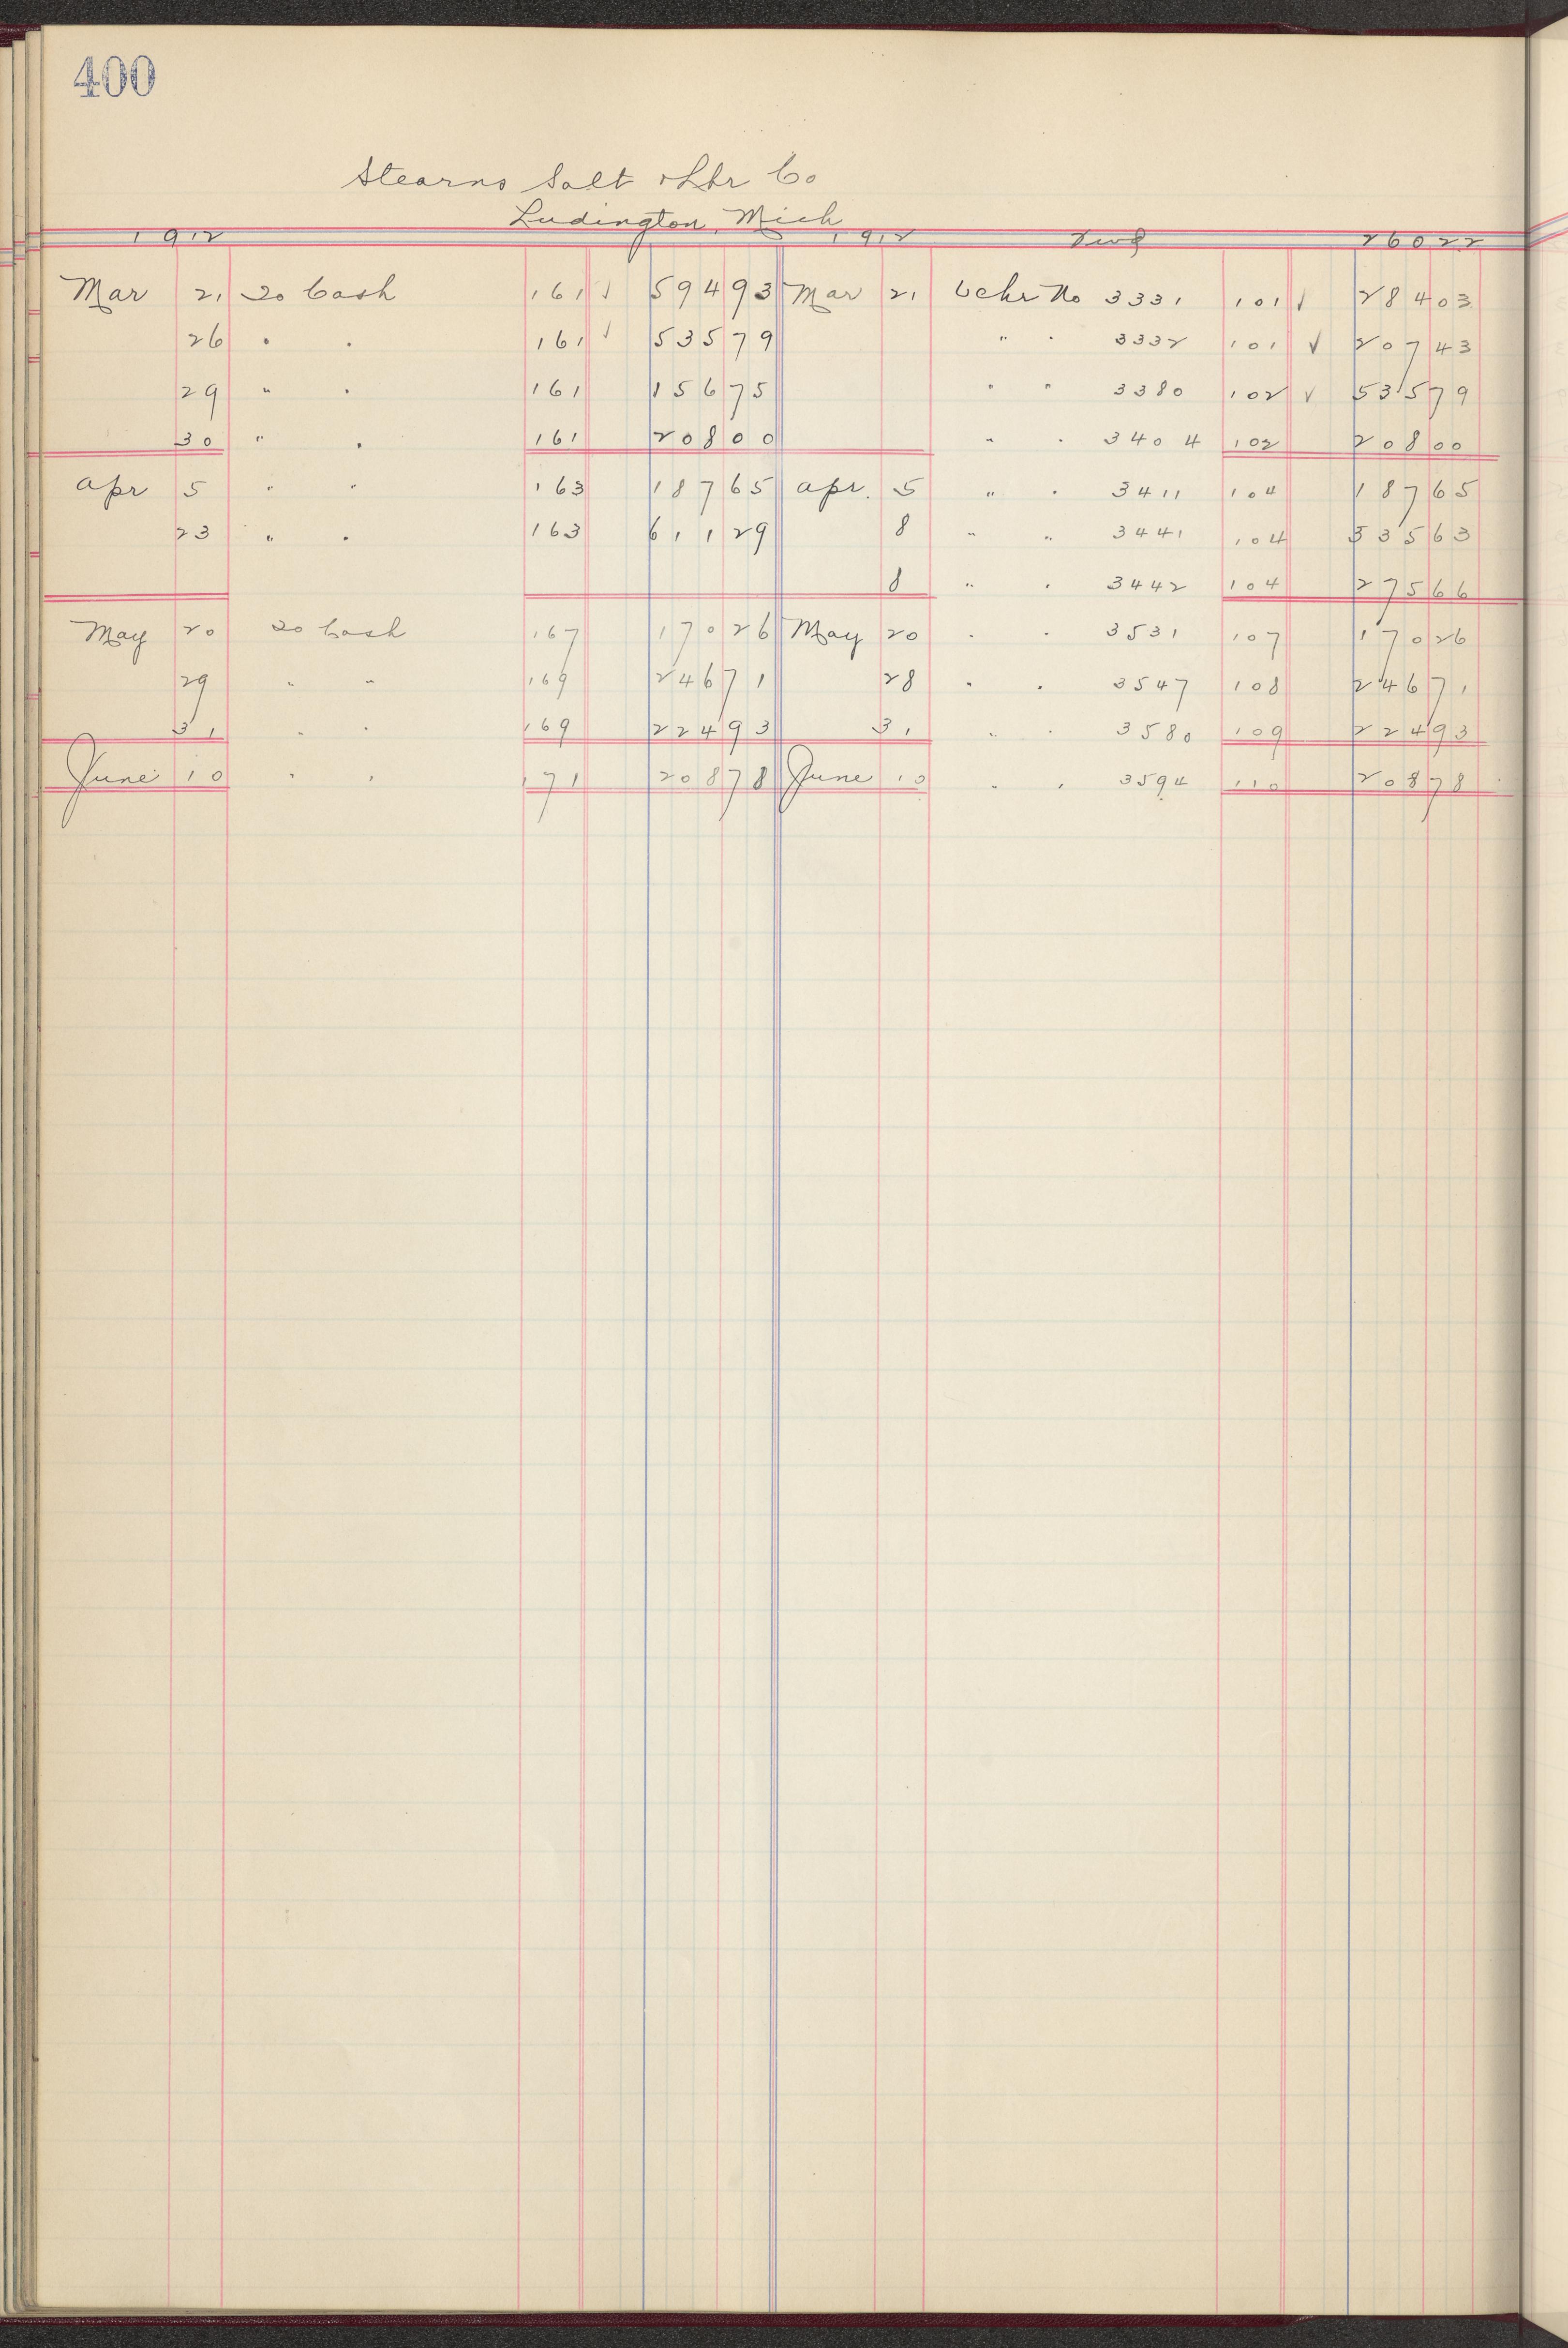 400
Stearns Salt & Lbr Co
Ludington, Mich
1912 1912 Fwd 26022
Mar 21 To Cash 161 ✓ 59493 Mar 21 Vchr No 3331 101 ✓ 28403
26 " " 161 ✓ 53579 " " 3332 101 ✓ 20743
29 " " 161 15675 " " 3380 102 ✓ 53579
30 " " 161 20800 " " 3404 102 20800
Apr 5 " " 163 18765 Apr. 5 " " 3411 104 18765
23 " " 163 61129 8 " " 3441 104 33563
8 " " 3442 104 27566
May 20 To Cash 167 17026 May 20 " " 3531 107 17026
29 " " 169 24671 28 " " 3547 108 24671
31 " " 169 22493 31 " " 3580 109 22493
June 10 " " 171 20878 June 10 " " 3594 110 20878